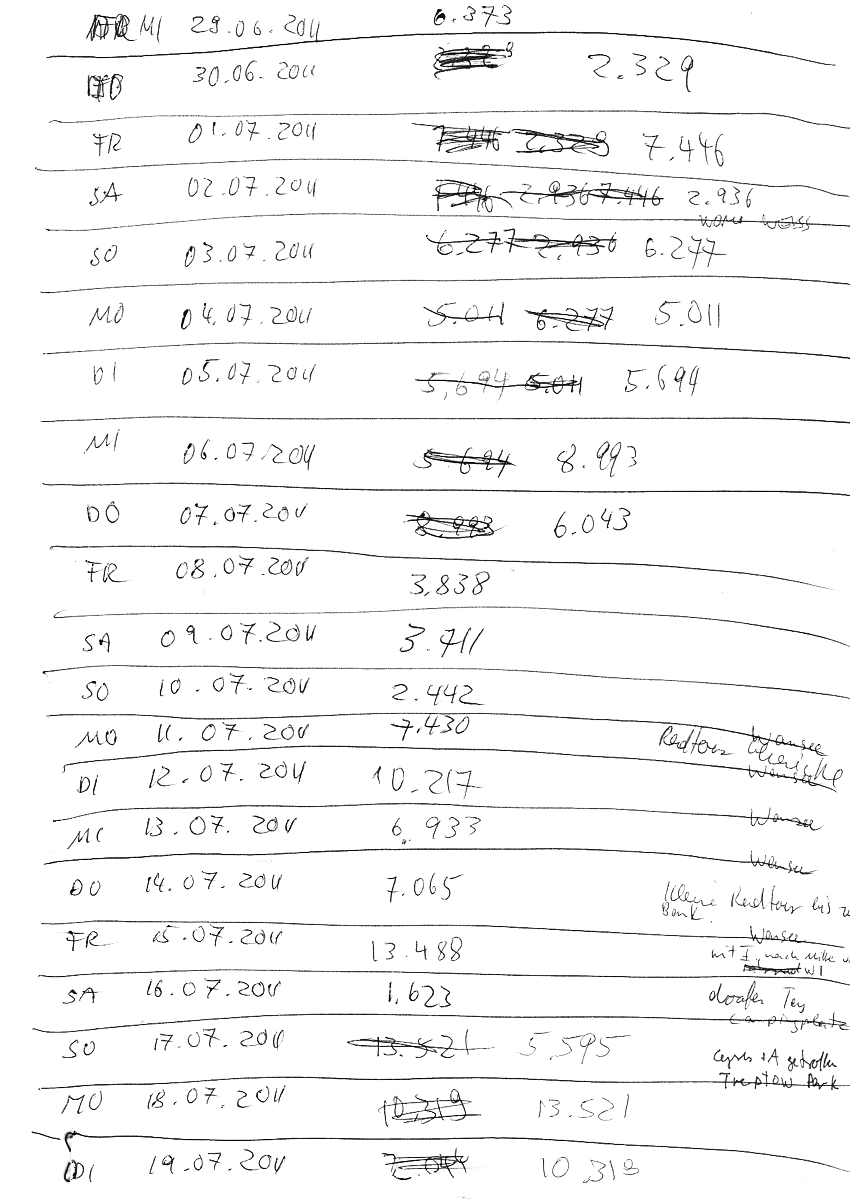 MI 29.06.2011 6.373
DO 30.06.2011 2.329
FR 01.07.2011 7.446 2.329 7.446
SA 02.07.2011 7.446 2.936 7.446 2.936
WEISS
SO 03.07.2011 6.277 2.936 6.277
MO 04.07.2011 5.011 6.277 5.011
DI 05.07.2011 5.694 5.011 5.694
MI 06.07.2011 5.694 8.993
DO 07.07.2011 8.993 6.043
FR 08.07.2011 3.838
SA 09.07.2011 3.711
SO 10.07.2011 2.442
MO 11.07.2011 7.430 Wansee
Radtour
DI 12.07.2011 10.217 Wansee
MI 13.07.2011 6.933 Wansee
Wansee
DO 14.07.2011 7.065 Kleine Radtour bis
Bank.
FR 15.07.2011 13.488 Wansee
mit I. nach Mitte
SA 16.07.2011 1.623
Campingplatz
SO 17.07.2011 13.521 5.595
+A getroffen
Treptow Park
MO 18.07.2011 10.319 13.521
DI 19.07.2011 10.319